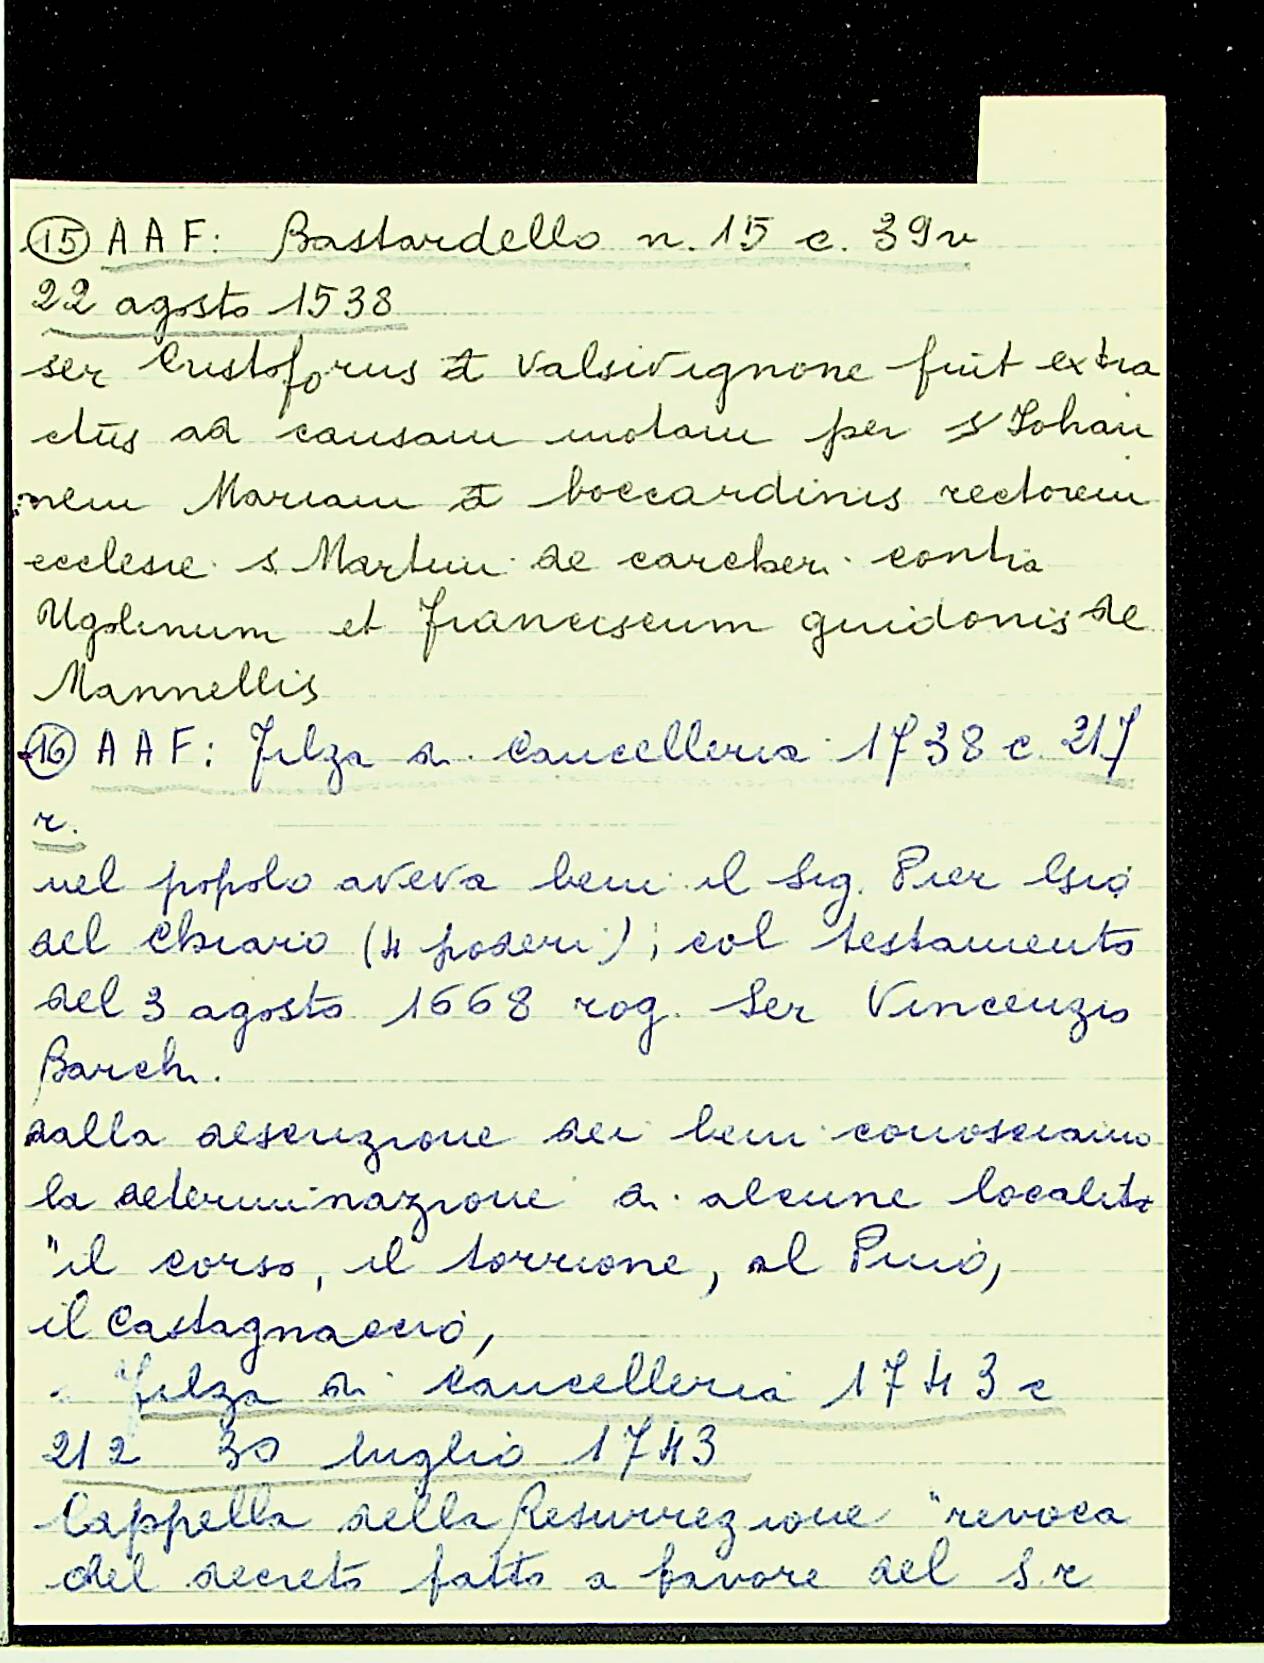 15 AAF: Bastardello n. 15 c. 39v
22 agosto 1538
ser Cristoforus a Valsivignone fuit extra
ctus ad causam motam per s Johan
nem Mariam a boccardinis rectorem
ecclesie s. Martini de carcheri contra
Ugolinum et Franciscum guidonis de
Mannellis
16 AAF: Filza di Cancelleria 1738 c. 217
r.
nel popolo aveva beni il Sig. Pier Gio
del Chiaro (4 poderi); col testamento
del 3 agosto 1668 rog. Ser Vincenzio
Barchi.
dalla descrizione dei beni conosciamo
la determinazione di alcune località
"il corso, il torrione, al Pino,
il Castagnaccio,
Filza di Cancelleria 1743 c
212 30 luglio 1743
Cappella della Resurrezione "revoca
del decreto fatto a favore del S.r